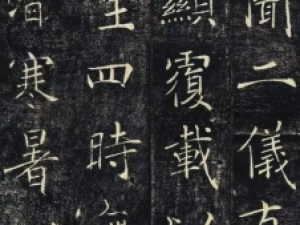 聞二儀有
顯覆載
生四時無
潛寒暑